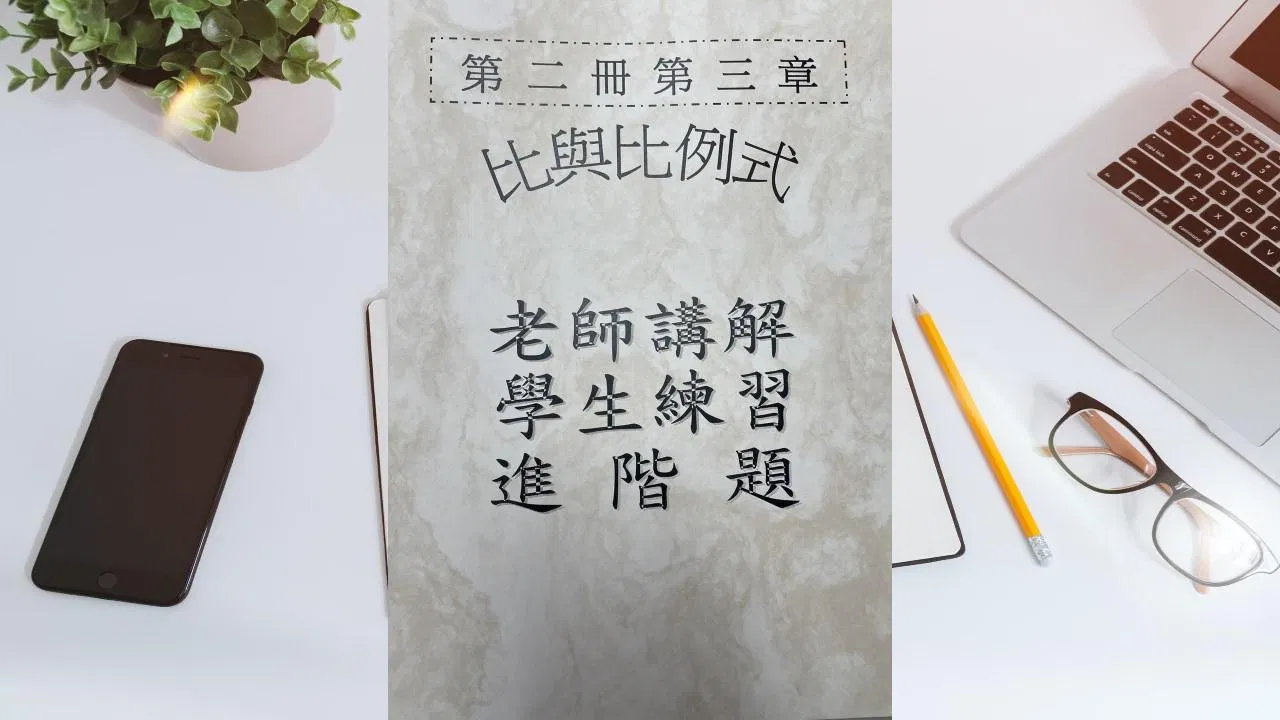 第二冊第三章
比與比例式
老師講解
學生練習
進階題